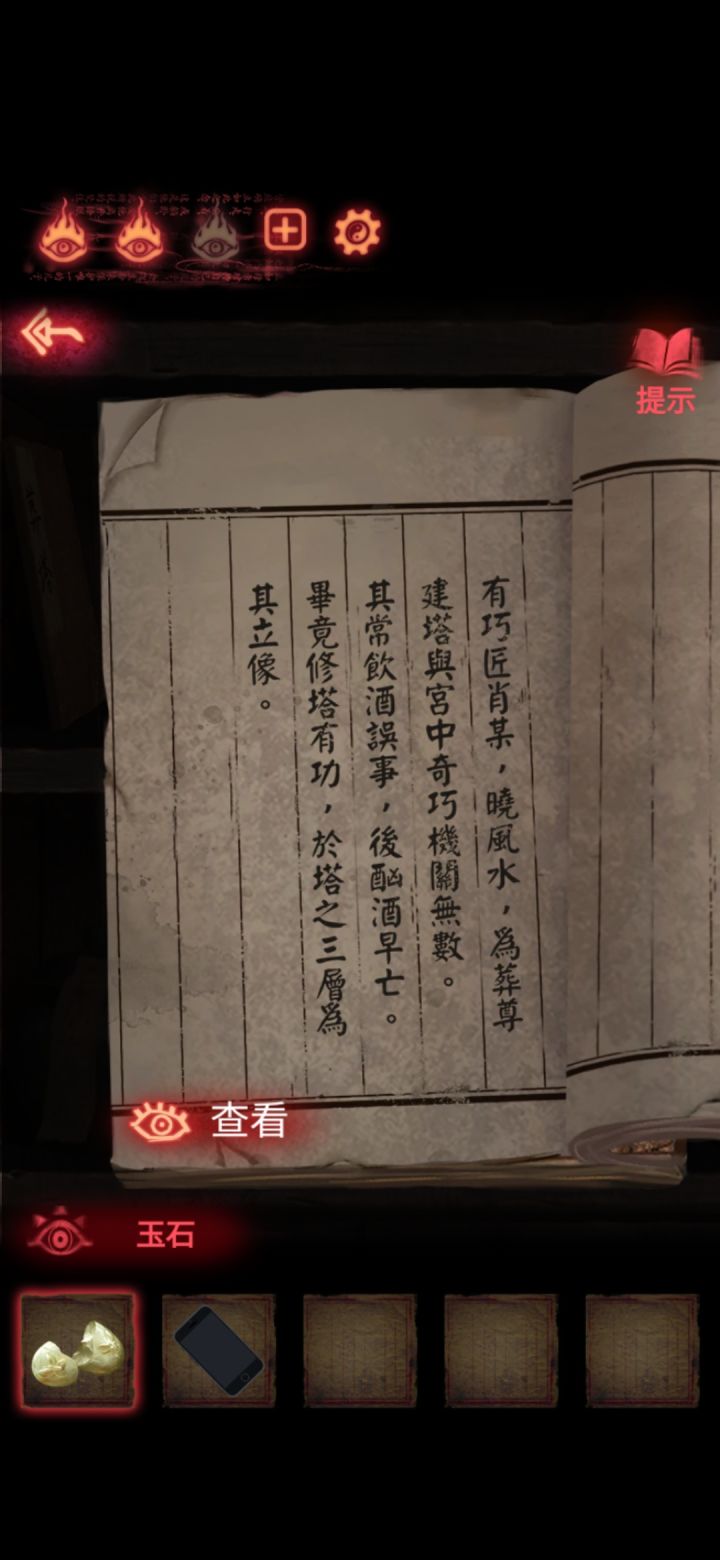 提示
有巧匠肖某，曉風水，為葬尊
建塔與宮中奇巧機關無數。
其常飲酒誤事，後酗酒早亡。
畢竟修塔有功，於塔之三層為
其立像。
查看
玉石